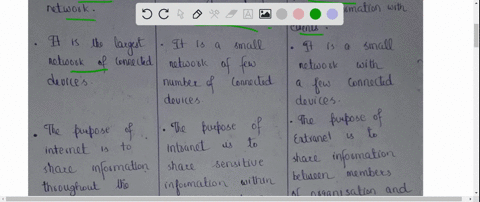 network.
• It is the largest
network of connected
devices.
• The purpose of
internet is to
share information
throughout the
• It is a small
network of few
number of connected
devices
• The purpose of
Intranet is to
share sensitive
information within
with
clients.
• It is a small
network with
a few connected
devices.
• The purpose of
Extranet is to
share information
between members
of organisation and